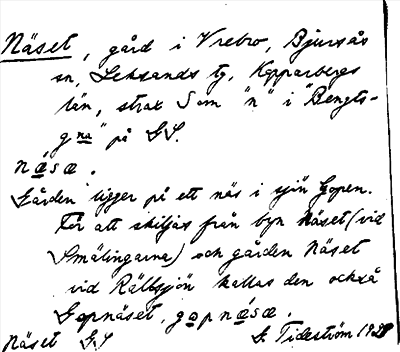 Näset, gård i Vrebro, Bjursås
sn, Leksands tg, Kopparbergs
län, strax S om "n" i "Bengts-
gna" på GS.
næ̀sæ.
Gården ligger på ett näs i sjön Gopen.
För att skiljas från byn Näset (vid
Smälingarna) och gården Näset
vid Rällsjön kallas den också
Gopnäset, gopnǽsæ.
Näset GS G. Tideström 1928